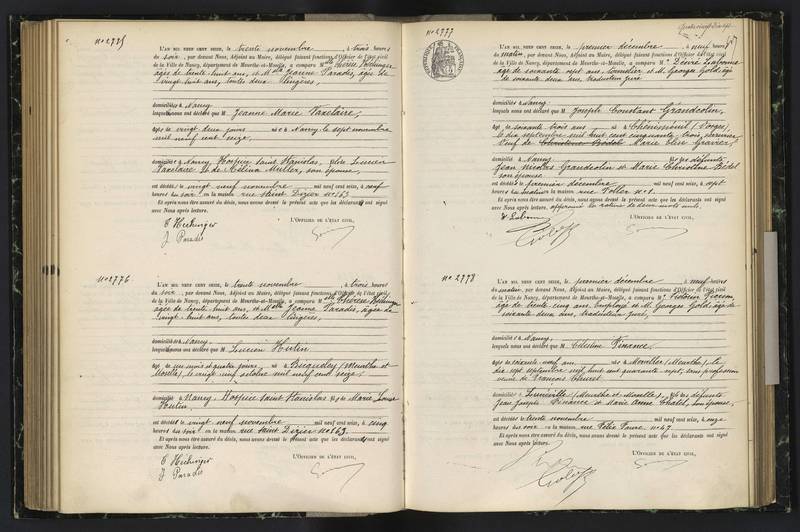 N° 2775
L'AN MIL NEUF CENT SEIZE, le trente novembre, à trois heures
du soir, par devant Nous, Adjoint au Maire, délégué faisant fonctions d'Officier de l'état civil
de la Ville de Nancy, département de Meurthe-et-Moselle, a comparu Mlle Thérèse Hechinger
âgée de trente huit ans, et Mlle Jeanne Paradis, âgée de
vingt huit ans, toutes deux lingères,
domiciliés à Nancy
lesquels nous ont déclaré que M. Jeanne Marie Vaxelaire,
âgée de vingt deux jours née à Nancy le sept novembre
mil neuf cent seize,
domiciliée à Nancy, Hospice Saint Stanislas, fille Lucien
Vaxelaire et de Muller, son épouse,
est décédée le vingt neuf novembre mil neuf cent seize, à neuf
heures du soir en la maison rue Saint Dizier n° 163
Et après nous être assuré du décès, nous avons dressé le présent acte que les déclarants ont signé
avec Nous après lecture.
T Hechinger
L'OFFICIER DE L'ÉTAT CIVIL,
J Paradis
N° 2776
L'AN MIL NEUF CENT SEIZE, le trente novembre, à trois heures
du soir, par devant Nous, Adjoint au Maire, délégué faisant fonctions d'Officier de l'état civil
de la Ville de Nancy, département de Meurthe-et-Moselle, a comparu Mlle Thérèse Hechinger
âgée de trente huit ans, et Mlle Jeanne Paradis, âgée de
vingt huit ans, toutes deux lingères,
domiciliés à Nancy
lesquels nous ont déclaré que M. Lucien Hutin
âgé de un mois et quatre jours, né à (Meurthe et
Moselle), le vingt octobre mil neuf cent seize,
domicilié à Nancy Hospice Saint Stanislas fils de Marie Louise
Hutin,
est décédé le vingt neuf novembre mil neuf cent seize, à cinq
heures du soir en la maison rue Saint Dizier n° 163
Et après nous être assuré du décès, nous avons dressé le présent acte que les déclarants ont signé
avec Nous après lecture.
T Hechinger
L'OFFICIER DE L'ÉTAT CIVIL,
J Paradis
N° 2777
L'AN MIL NEUF CENT SEIZE, le premier décembre à neuf heures
du matin, par devant Nous, Adjoint au Maire, délégué faisant fonctions d'Officier de l'état civil
de la Ville de Nancy, département de Meurthe-et-Moselle, a comparu M. Désiré
âgé de soixante sept ans, et M. Georges Golds âgé
de soixante deux ans, traducteur juré
domiciliés à Nancy
lesquels nous ont déclaré que M. Joseph Constant Grandcolin,
âgé de soixante trois ans né à Chéniménil (Vosges),
le dix septembre mil huit cent cinquante trois,
veuf de Christine Bedel Marie Elise Gravier,
domicilié à Nancy fils des défunts
Jean Nicolas Grandcolin et Marie Christine Bedel
son épouse
est décédé le premier décembre mil neuf cent seize, à sept
heures du matin en la maison rue n° 1.
Et après nous être assuré du décès, nous avons dressé le présent acte que les déclarants ont signé
avec Nous après lecture. approuvé la rature de deux mots nuls.
L'OFFICIER DE L'ÉTAT CIVIL,
N° 2778
L'AN MIL NEUF CENT SEIZE, le premier décembre à neuf heures
du matin, par devant Nous, Adjoint au Maire, délégué faisant fonctions d'Officier de l'état civil
de la Ville de Nancy, département de Meurthe-et-Moselle, a comparu M.
âgé de trente cinq ans, employé et M. Georges Golds âgé de
soixante deux ans, traducteur juré,
domiciliés à Nancy,
lesquels nous ont déclaré que M. Célestine Finance
âgée de soixante neuf ans née à (Meurthe), le
dix sept septembre mil huit cent quarante sept, sans profession
veuve de François
domiciliée à Lunéville (Meurthe et Moselle), fille des défunts
Jean Joseph Finance et Marie Anne son épouse,
est décédée le trente novembre mil neuf cent seize, à onze
heures du soir en la maison rue Félix Faure n° 47.
Et après nous être assuré du décès, nous avons dressé le présent acte que les déclarants ont signé
avec Nous après lecture.
L'OFFICIER DE L'ÉTAT CIVIL,